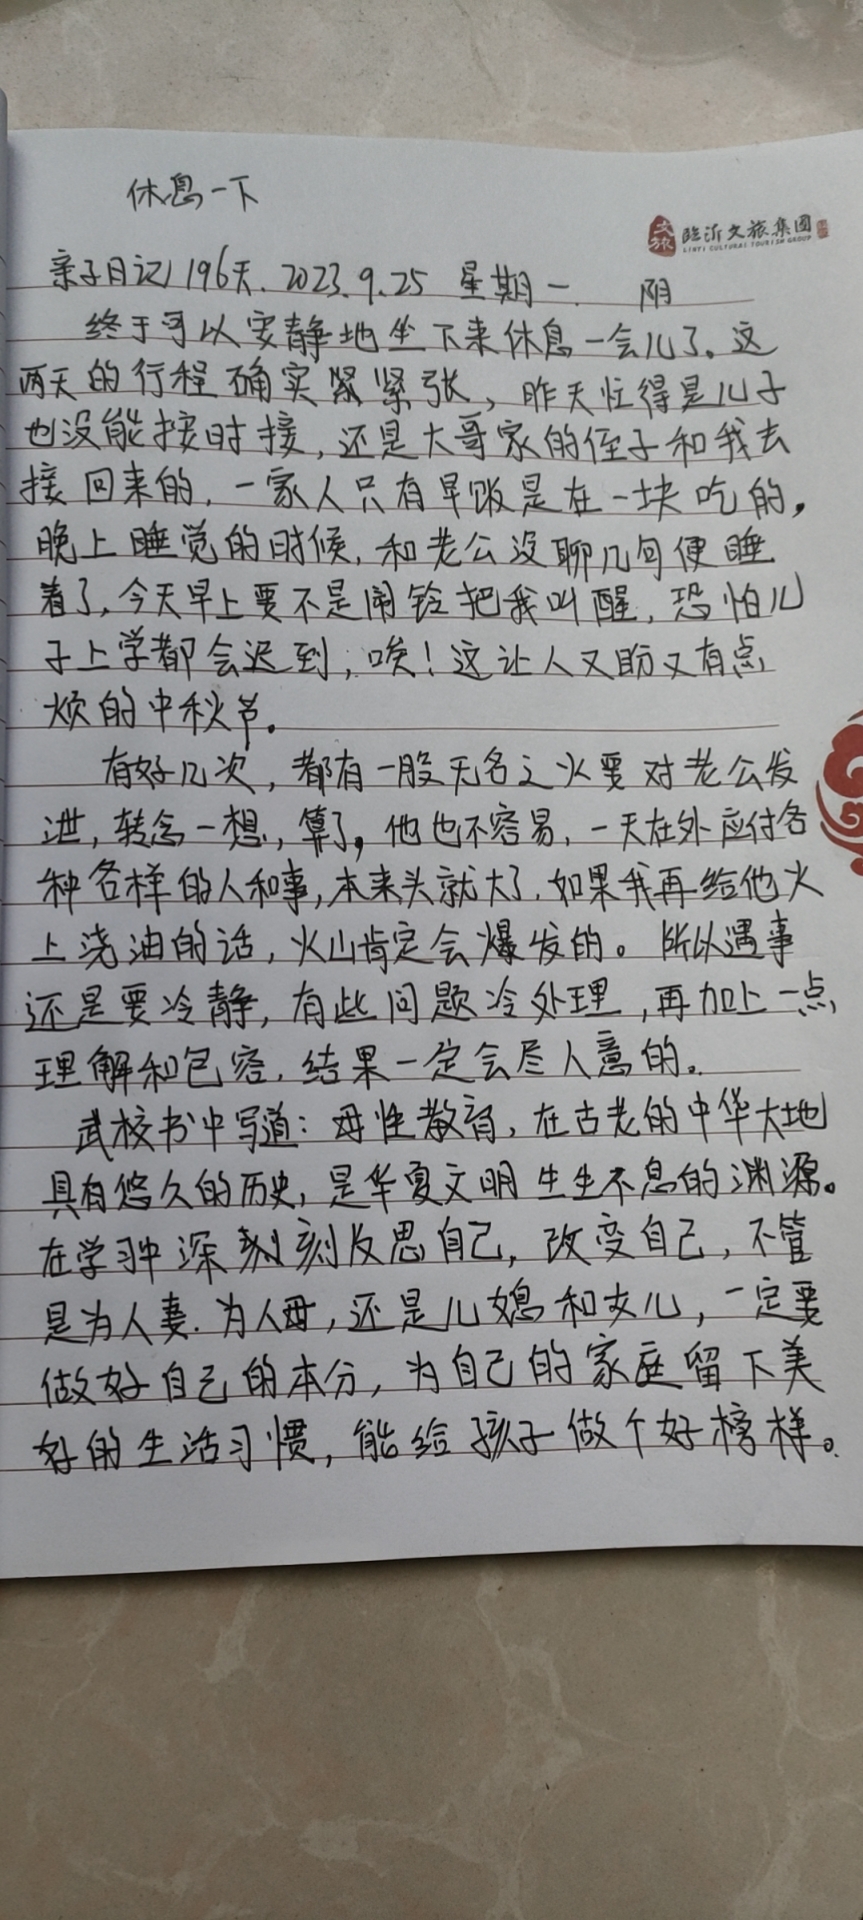 休息一下
文旅 临沂文旅集团
LINYI CULTURAL TOURISM GROUP
亲子日记196天. 2023.9.25 星期一. 阴
终于可以安静地坐下来休息一会儿了。这
两天的行程确实紧紧张，昨天忙得是儿子
也没能按时接，还是大哥家的侄子和我去
接回来的，一家人只有早饭是在一块吃的，
晚上睡觉的时候，和老公没聊几句便睡
着了，今天早上要不是闹铃把我叫醒，恐怕儿
子上学都会迟到，唉！这让人又盼又有点
烦的中秋节。
有好几次，都有一股无名之火要对老公发
泄，转念一想，算了，他也不容易，一天在外应付各
种各样的人和事，本来头就大了，如果我再给他火
上浇油的话，火山肯定会爆发的。所以遇事
还是要冷静，有些问题冷处理，再加上一点
理解和包容，结果一定会尽人意的。
武校书中写道：母性教育，在古老的中华大地
具有悠久的历史，是华夏文明生生不息的渊源。
在学习中深刻刻反思自己，改变自己，不管
是为人妻.为人母，还是儿媳和女儿，一定要
做好自己的本分，为自己的家庭留下美
好的生活习惯，能给孩子做个好榜样。